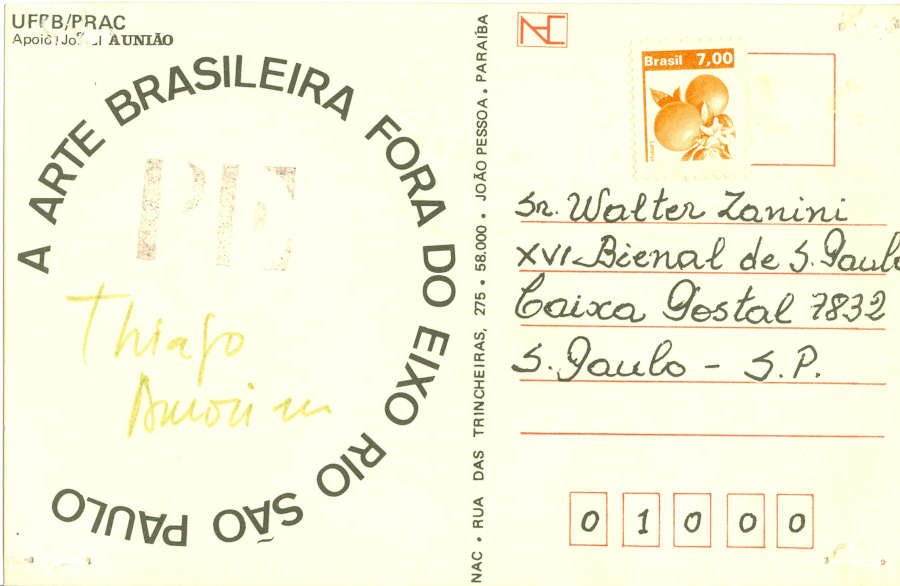 UFPB/PRAC
Apoio: A UNIÃO
A ARTE BRASILEIRA FORA DO EIXO RIO SÃO PAULO
PE
Thiago
Amorim
NAC • RUA DAS TRINCHEIRAS, 275 • 58.000 • JOÃO PESSOA • PARAÍBA
NAC
Brasil 7,00
Sr. Walter Zanini
XVI Bienal de S. Paulo
Caixa Postal 7832
S. Paulo - S.P.
0 1 0 0 0